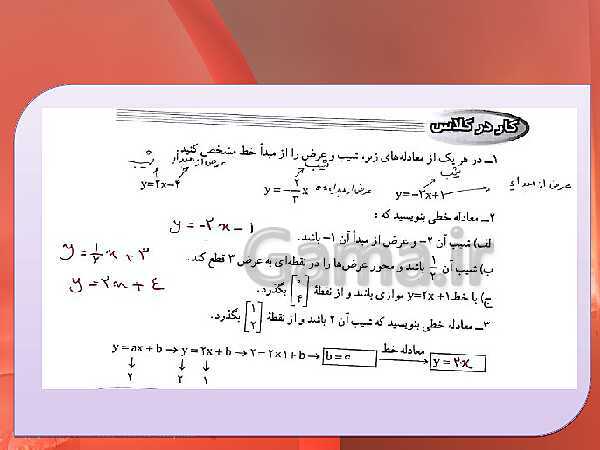 کار در کلاس
۱ــ در هر یک از معادله‌های زیر، شیب و عرض را از مبدأ خط مشخص کنید.
شیب عرض از مبدأ شیب شیب
y=۲x-۴ y=-۲/۳x عرض از مبداء=۰ y=-۳x+۲ عرض از مبداء
۲ــ معادله خطی بنویسید که :
الف) شیب آن ۲- و عرض از مبدأ آن ۱- باشد. y = -۲x - ۱
ب) شیب آن ۱/۲ باشد و محور عرض‌ها را در نقطه‌ای به عرض ۳ قطع کند. y = ۱/۲x + ۳
ج) با خط y=۲x+۱ موازی باشد و از نقطهٔ [۰ ۴] بگذرد. y = ۲x + ٤
۳ــ معادله خطی بنویسید که شیب آن ۲ باشد و از نقطهٔ [۱ ۲] بگذرد.
y = ax + b → y = ۲x + b → ۲ = ۲×۱ + b → b = ۰ معادله خط → y = ۲x
↓ ↓ ↓
۲ ۲ ۱
Gama.ir